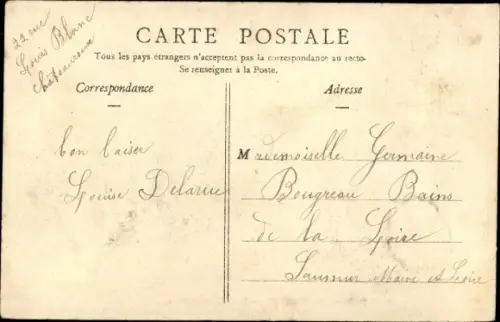 22 rue
Louis Blanc
Châteauroux
CARTE POSTALE
Tous les pays étrangers n'acceptent pas la correspondance au recto.
Se renseigner à la Poste.
Correspondance
Adresse
bon baiser
Louise Delarue
Mademoiselle Germaine
Bougreau Bains
de la Loire
Saumur Maine et Loire